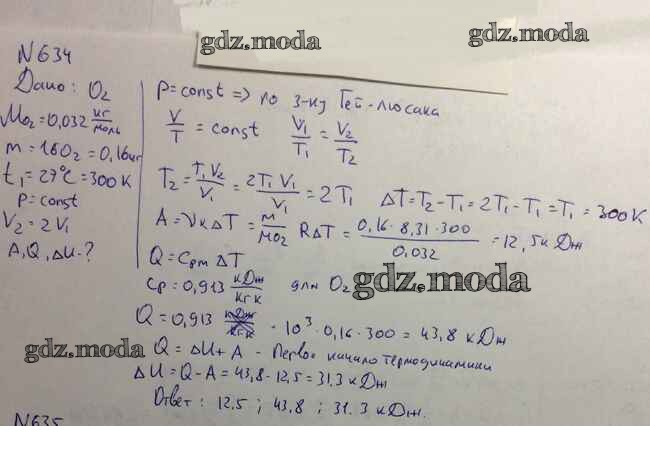 gdz.moda
gdz.moda
N634
Дано: O₂
M_O₂ = 0,032 кг/моль
m = 160г = 0,16кг
t₁ = 27°C = 300K
P = const
V₂ = 2V₁
A, Q, ΔU - ?
P = const => по з-ку Гей-люсака
V/T = const V₁/T₁ = V₂/T₂
T₂ = T₁V₂/V₁ = 2T₁V₁/V₁ = 2T₁ ΔT = T₂ - T₁ = 2T₁ - T₁ = T₁ = 300K
A = νRΔT = m/M_O₂ RΔT = 0,16 · 8,31 · 300/0,032 = 12,5кДж
Q = Cpm ΔT
Cp = 0,913 кДж/кг к для O₂
gdz.moda
Q = 0,913 кДж/кг к · 10³ · 0,16 · 300 = 43,8 кДж
gdz.moda
Q = ΔU + A - Первое начало термодинамики
ΔU = Q - A = 43,8 - 12,5 = 31.3 кДж
Ответ: 12.5; 43,8; 31.3 кДж.
N635